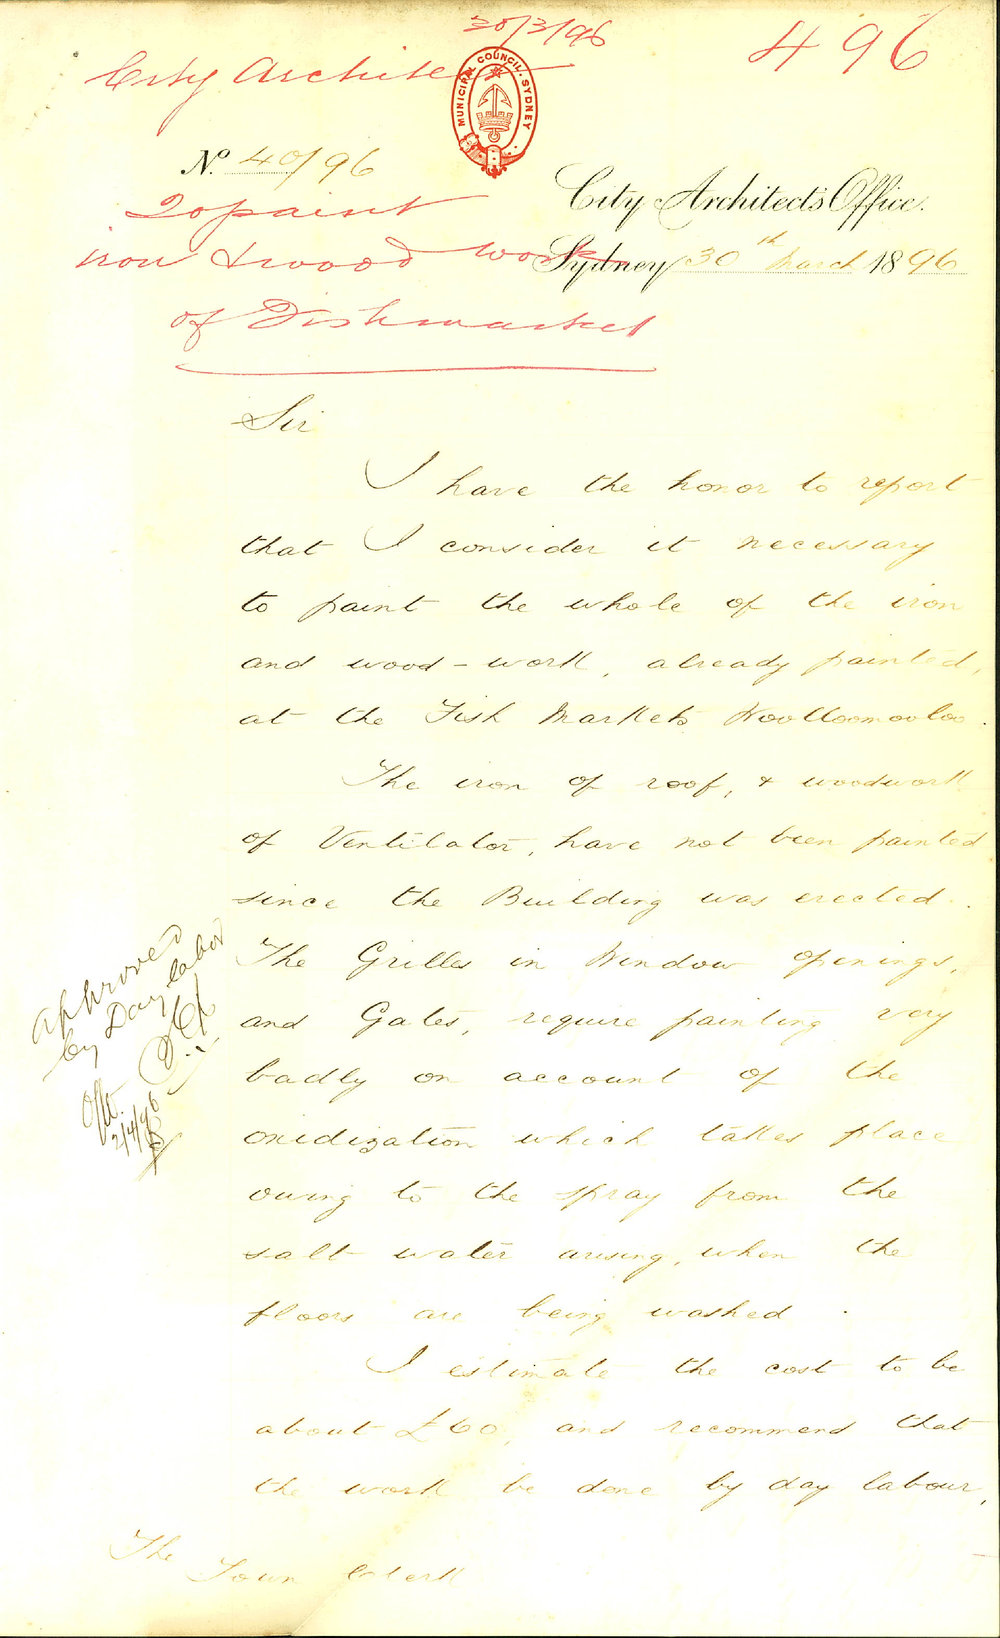 30/3/96
496
City Architect
MUNICIPAL COUNCIL. SYDNEY
No. 40/96
City Architect's Office.
To paint
iron & wood work
Sydney 30th March 1896
of Fishmarket
Sir
I have the honor to report
that I consider it necessary
to paint the whole of the iron
and wood-work, already painted,
at the Fish Markets Woolloomooloo.
The iron of roof, & woodwork
of Ventilator, have not been painted
since the Building was erected.
The Grilles in Window openings,
and Gates, require painting very
badly on account of the
oxidization which takes place
owing to the spray from the
salt water arising, when the
floors are being washed.
I estimate the cost to be
about £60, and recommend that
the work be done by day labour,
The
Town Clerk
Approved
by Day labor
2/4/96